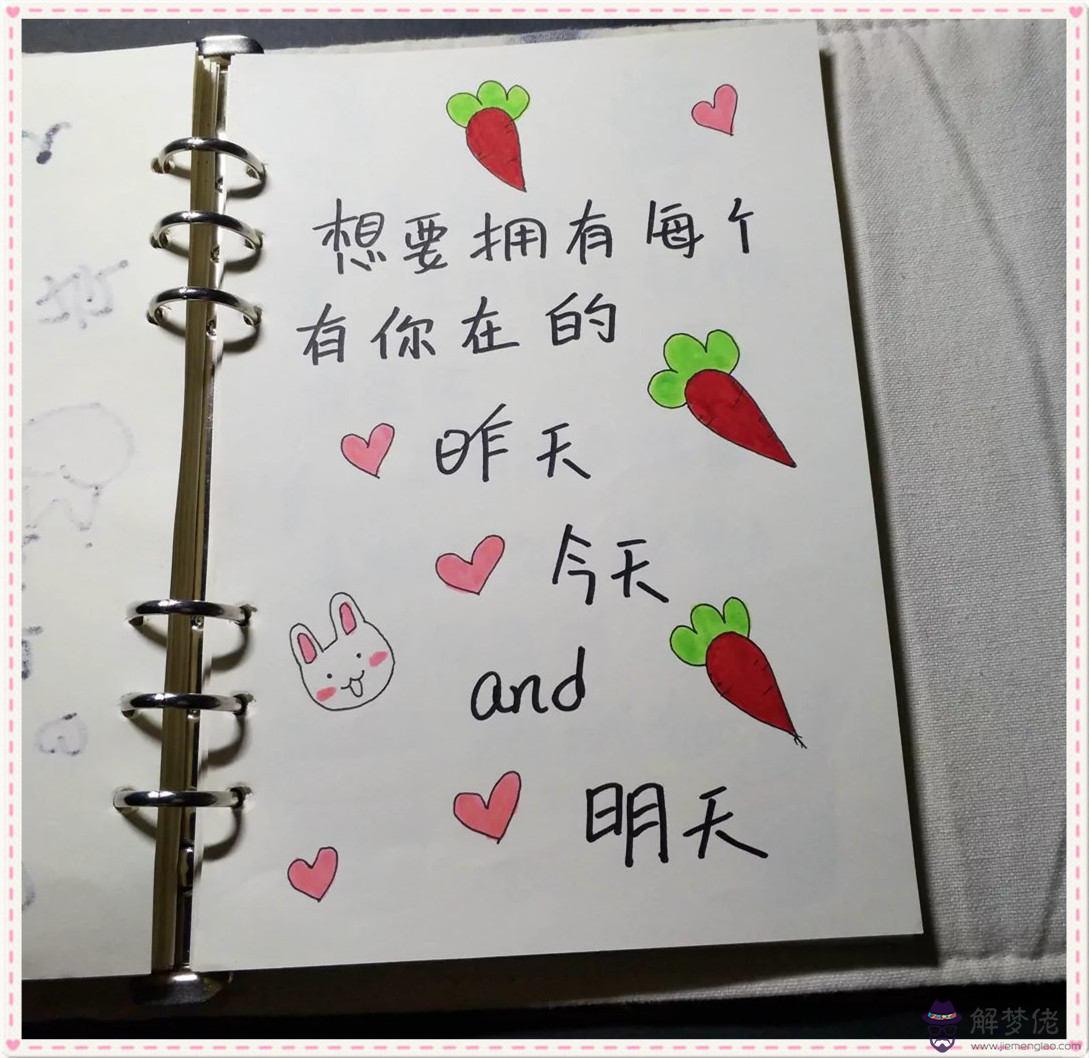 想要拥有每个
有你在的
昨天
今天
and
明天
解梦佬
www.jiemenglao.com